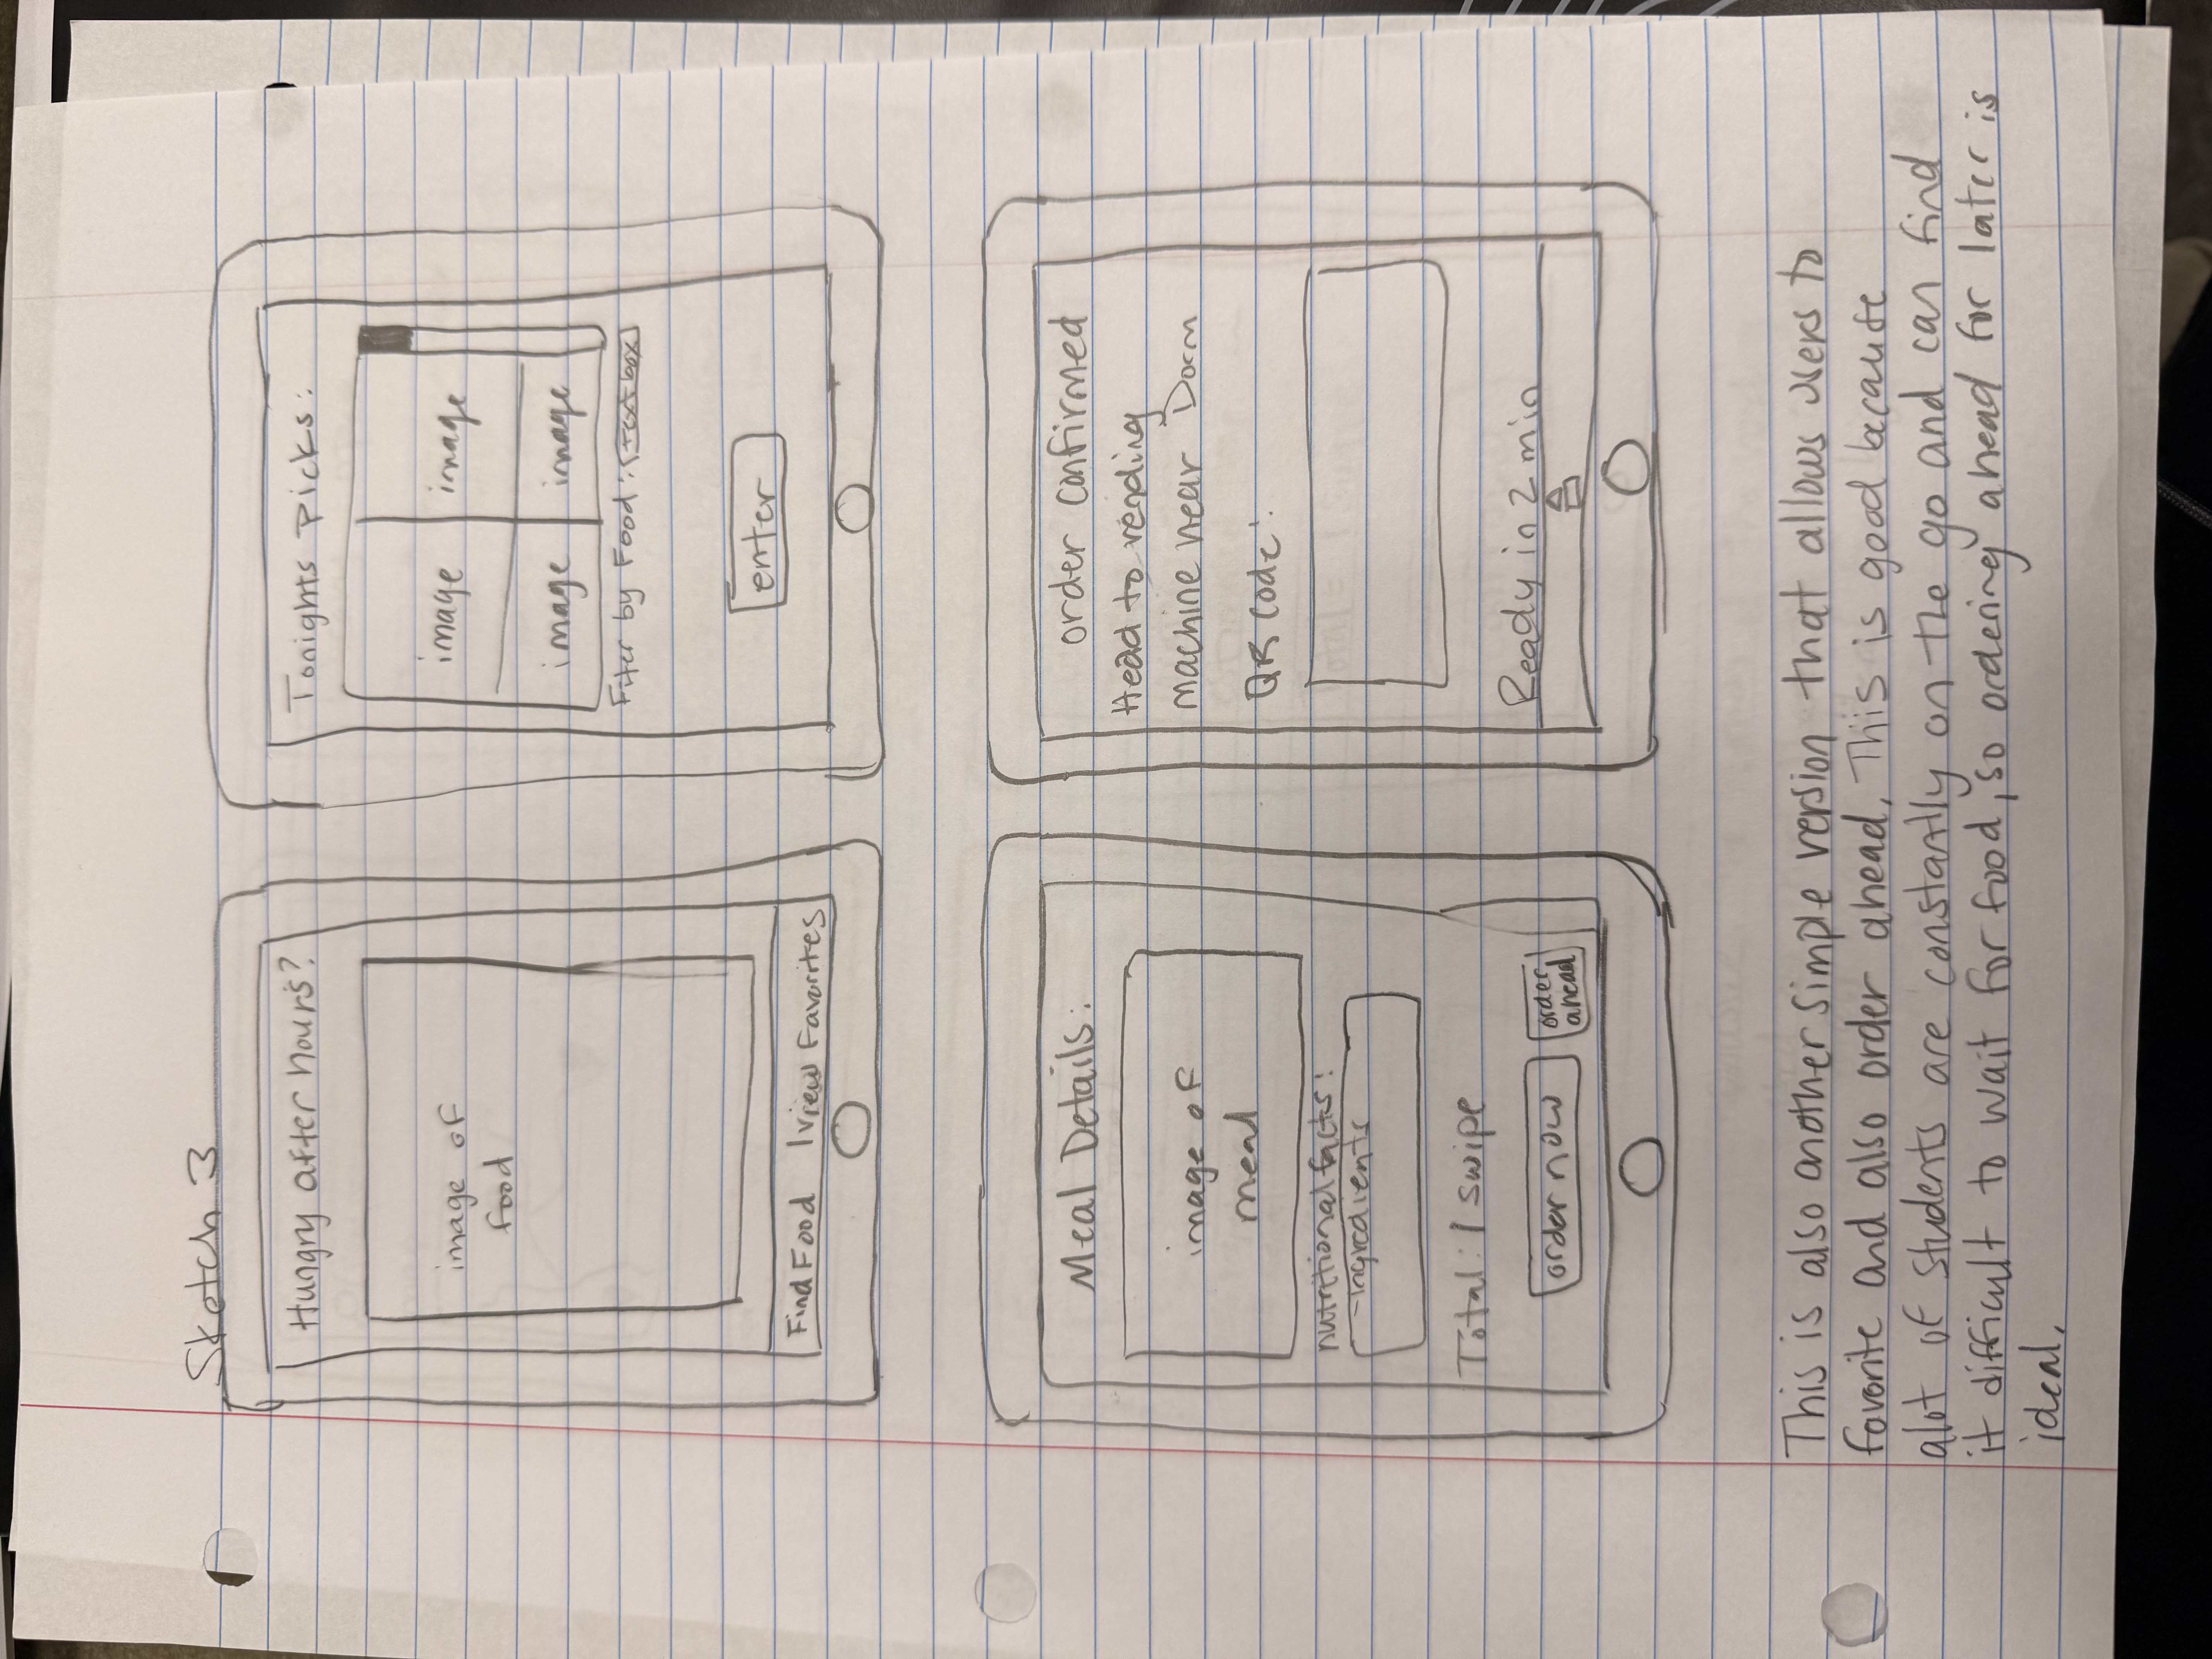 Sketch 3
Hungry after hours?
image of
food
Find Food | View Favorites
Tonights Picks:
image image
image image
Fiter by Food: [text box]
enter
Meal Details:
image of
meal
nutritional facts:
-Ingredients
Total: 1 swipe
order now
order
ahead
order confirmed
Head to vending
machine near Dorm
QR code:
Ready in 2 min
This is also another simple version that allows users to
favorite and also order ahead. This is good because
alot of students are constantly on the go and can find
it difficult to wait for food, so ordering ahead for later is
ideal.